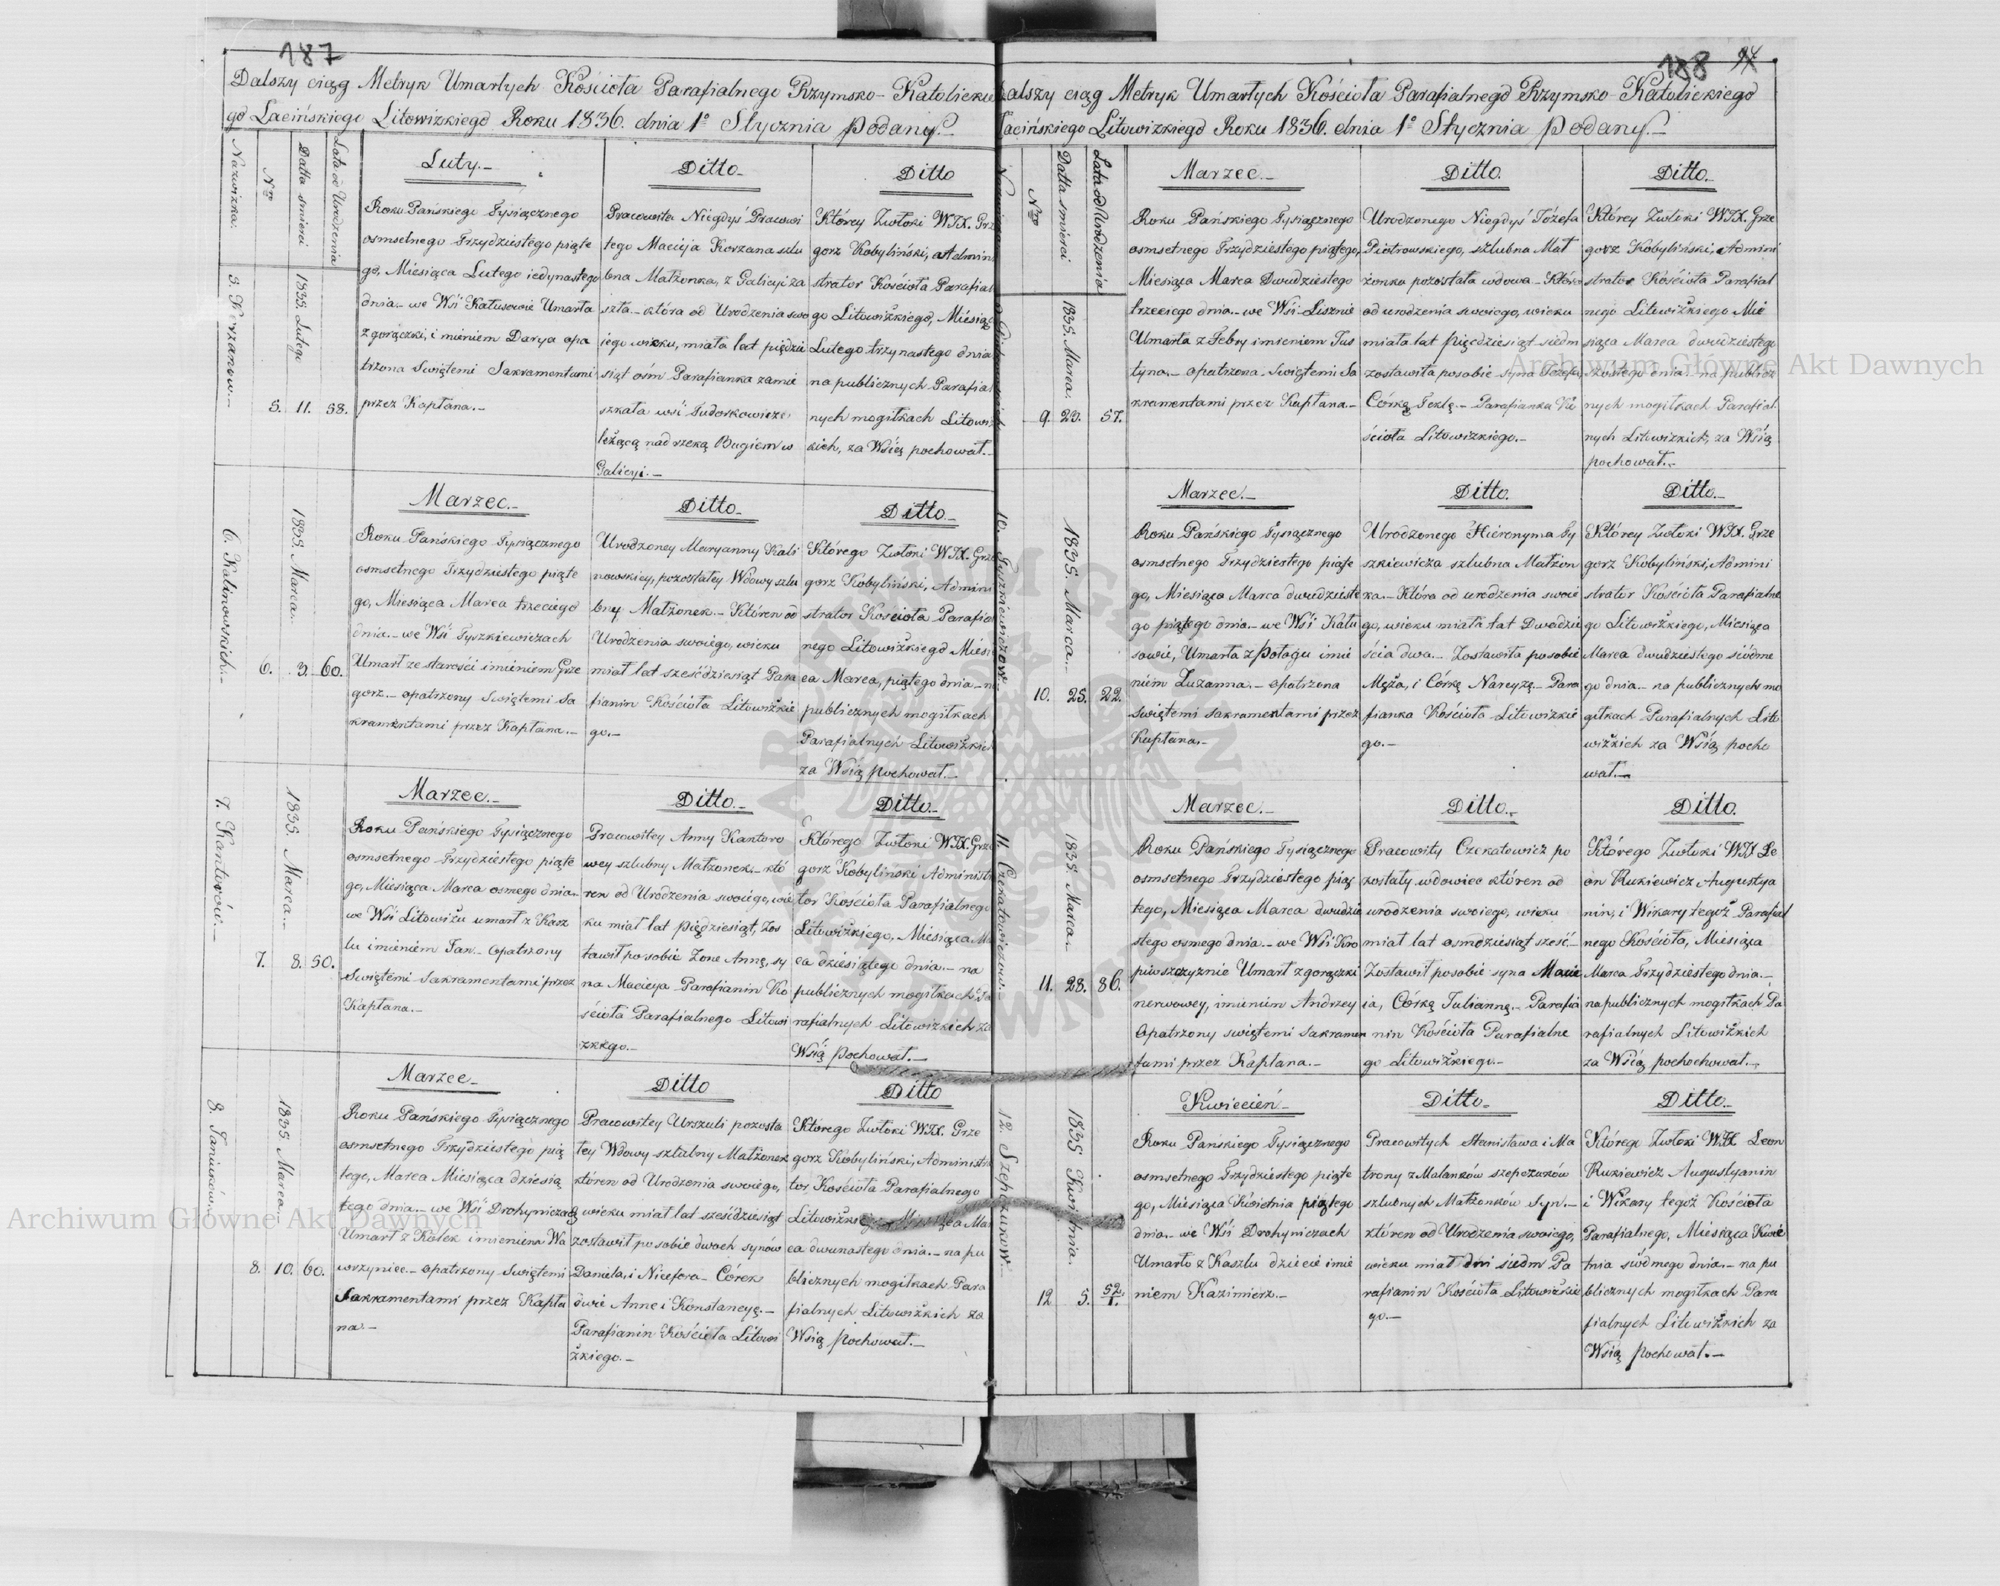 187
Dalszy ciąg Metryk Umarłych Kościoła Parafialnego Rzymsko-Katolickie
go Łacińskiego Litowizkiego Roku 1836. dnia 1º Stycznia podany.—
Nazwizka.
Nro
Datta śmierci
Lata od Urodzenia
5. Korzanow.—
5.
1835. Lutego
11.
58.
Luty.—
Roku Pańskiego Tysiącznego
osmsetnego Trzydziestego piąte
go, Miesiąca Lutego iedynastego
dnia.— we Wśi Katusowie Umarła
z gorączki, i mieniem Darya opa
trzona Swiętemi Sakramentami
przez Kapłana.—
Ditto—
Pracowita Niegdyś Pracowi
tego Macieja Korzana szlu
bna Małżonka, z Galicyi za
szła.— która od Urodzenia swo
jego wieku, miała lat pięździe
siąt ośm Parafianka zamie
szkała wśi Tudorkowicze
leżącą nad rzeką Bugiem w
Galicyi.—
Ditto
Którey Zwłoki WJX. Grz
gorz Kobyliński, Admini
strator Kościoła Parafial
go Litowizkiego, Miesiąc
Lutego trzynastego dnia
na publicznych Parafial
nych mogiłkach Litowi
zkich, za Wśią pochował.—
6. Kalinowskich.—
6.
1835. Marca.
3.
60.
Marzec.—
Roku Pańskiego Tysiącznego
osmsetnego Trzydziestego piąte
go, Miesiąca Marca trzeciego
dnia.— we Wśi Tyszkiewiczach
Umarł ze starości imieniem Grze
gorz.— opatrzony Swiętemi Sa
kramentami przez Kapłana.—
Ditto—
Urodzoney Maryanny Kali
nowskiey, pozostałey Wdowy szlu
bny Małżonek.— Któren od
Urodzenia swoiego, wieku
miał lat sześćdziesiąt Para
fianin Kościoła Litowizkie
go.—
Ditto—
Którego Zwłoki WJX. Grze
gorz Kobyliński, Admini
strator Kościoła Parafial
nego Litowizkiego Miesi
ca Marca, piątego dnia— n
publicznych mogiłkach
Parafialnych Litowizkich
za Wśią pochował.—
7. Kantorów.—
7.
1835. Marca.—
8.
50.
Marzec.—
Roku Pańskiego Tysiącznego
osmsetnego Trzydziestego piąte
go, Miesiąca Marca osmego dnia.
we Wśi Litowiżu umarł z Kasz
lu imieniem Jan.— Opatrzony
Swiętemi Sakramentami przez
Kapłana.—
Ditto.—
Pracowitey Anny Kantoro
wey szlubny Małżonek.— któ
ren od Urodzenia swoiego, wie
ku miał lat pięździesiąt, Zos
tawił po sobie Żone Annę, sy
na Macieja Parafianin Ko
ścioła Parafialnego Litowi
zkiego.—
Ditto.—
Którego Zwłoki WJX. Grze
gorz Kobyliński Administr
tor Kościoła Parafialnego
Litowizkiego, Miesiąca Ma
ca dziesiątego dnia.— na
publicznych mogiłkach Pa
rafialnych Litowizkich za
Wśią pochował.—
8. Janiuków.—
8.
1835. Marca.
10.
60.
Marzec—
Roku Pańskiego Tysiącznego
osmsetnego Trzydziestego pią
tego, Marca Miesiąca dziesią
tego dnia.— we Wśi Drohyniczach
Umarł z Kolek imieniem Wa
wrzyniec.— opatrzony Swiętemi
Sakramentami przez Kapła
na.—
Ditto
Pracowitey Urszuli pozosta
łey Wdowy szlubny Małżonek
któren od Urodzenia swoiego,
wieku miał lat sześćdziesiąt
zostawił po sobie dwoch synów
Daniela, i Nicefora— Córek
dwie Annę i Konstancyę.—
Parafianin Kościoła Litowi
żkiego.—
Ditto
Którego Zwłoki WJX. Grze
gorz Kobyliński, Administra
tor Kościoła Parafialnego
Litowizkiego Miesiąca Mar
ca dwunastego dnia.— na pu
blicznych mogiłkach Para
fialnych Litowizkich za
Wsią pochował.—
188
94
Dalszy ciąg Metryk Umarłych Kościoła Parafialnego Rzymsko-Katolickiego
Łacińskiego Litowizkiego Roku 1836. dnia 1º Stycznia podany.—
Nro
Datta śmierci
Lata od Urodzenia
9.
1835. Marca.
23.
57.
Marzec.—
Roku Pańskiego Tysiącznego
osmsetnego Trzydziestego piątego,
Miesiąca Marca Dwudziestego
trzeciego dnia.— we Wśi Lisznie
Umarła z Febry imieniem Jus
tyna.— opatrzona Swiętemi Sa
kramentami przez Kapłana.—
Ditto.
Urodzonego Niegdyś Józefa
Piotrowskiego, szlubna Mał
żonka pozostała wdowa.— Która
od urodzenia swoiego, wieku
miała lat pięćdziesiąt siedm
zostawiła po sobie syna Józefa,
Córkę Teklę.— Parafianka Ko
ścioła Litowizkiego.—
Ditto.
Którey Zwłoki WJX. Grze
gorz Kobyliński, Admini
strator Kościoła Parafial
nego Litowizkiego Mie
siąca Marca dwudziestego
szóstego dnia.— na publicz
nych mogiłkach Parafial
nych Litowizkich, za Wśią
pochował.—
10. Tyszkiewiczów.—
10.
1835. Marca.—
25.
22.
Marzec.—
Roku Pańskiego Tysiącznego
osmsetnego Trzydziestego piąte
go, Miesiąca Marca dwudzieste
go piątego dnia.— we Wśi Katu
sowie, Umarła z Połogu imie
niem Zuzanna.— opatrzona
Swiętemi sakramentami przez
Kapłana.—
Ditto.
Urodzonego Hieronyma Ty
szkiewicza szlubna Małżon
ka.— Która od urodzenia swoie
go, wieku miała lat Dwadzie
ścia dwa.— Zostawiła po sobie
Męża, i Córkę Narcyzę.— Para
fianka Kościoła Litowizkie
go.—
Ditto.—
Którey Zwłoki WJX. Grze
gorz Kobyliński, Admini
strator Kościoła Parafialne
go Litowizkiego, Miesiąca
Marca dwudziestego siódme
go dnia.— na publicznych mo
giłkach Parafialnych Lito
wizkich za Wśią pocho
wał.—
11. Czekatowiczow.—
11.
1835. Marca.
28.
86.
Marzec.—
Roku Pańskiego Tysiącznego
osmsetnego Trzydziestego pią
tego, Miesiąca Marca dwudzie
stego osmego dnia.— we Wśi Kro
piwszczyznie Umarł z gorączki
nerwowey, imieniem Andrzey
Opatrzony swiętemi Sakramen
tami przez Kapłana.—
Ditto.—
Pracowity Czekatowicz po
zostały wdowiec któren od
urodzenia swoiego, wieku
miał lat osmdziesiąt sześć—
Zostawił po sobie syna Macie
ia, Córkę Juliannę.— Parafia
nin Kościoła Parafialne
go Litowizkiego.—
Ditto.
Którego Zwłoki WJX Le
on Rukiewicz Augustya
nin, i Wikary tegoż Parafial
nego Kościoła, Miesiąca
Marca Trzydziestego dnia.—
na publicznych mogiłkach Pa
rafialnych Litowizkich
za Wśią pochochował.—
12. Szepczuków.—
12
1835 Kwietnia.
5.
52/1.
Kwiecień.—
Roku Pańskiego Tysiącznego
osmsetnego Trzydziestego piąte
go, Miesiąca Kwietnia piątego
dnia.— we Wśi Drohyniczach
Umarło z Kaszlu dziecie imie
niem Kazimierz.—
Ditto.—
Pracowitych Stanisława i Ma
trony z Malanków szepczuków
szlubnych Małżonków Syn.—
któren od Urodzenia swoiego,
wieku miał dni siedm Pa
rafianin Kościoła Litowizkie
go.—
Ditto.—
Którego Zwłoki WJX Leon
Rukiewicz Augustyanin
i Wikary tegoż Kościoła
Parafialnego, Miesiąca Kwie
tnia siódmego dnia.— na pu
blicznych mogiłkach Para
fialnych Litowizkich za
Wsią pochował.—
Archiwum Główne Akt Dawnych
Archiwum Główne Akt Dawnych